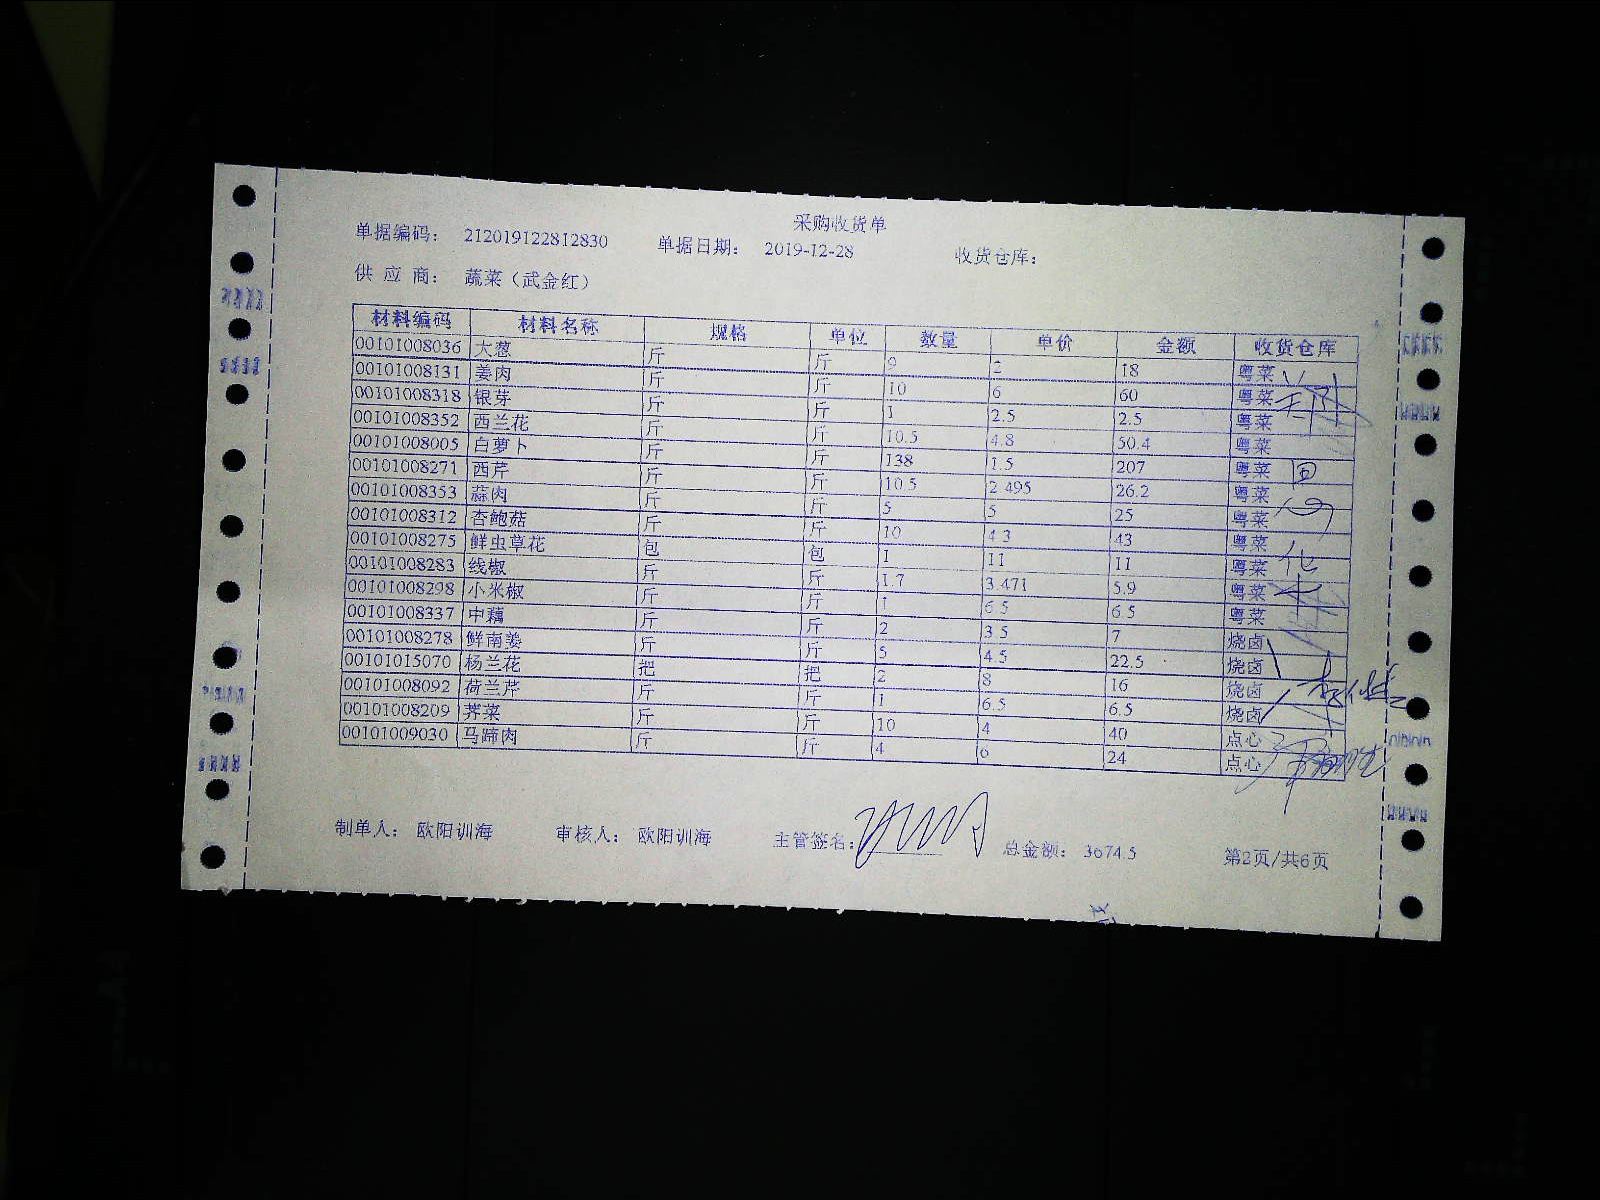 采购收货单
单据编码： 212019122812830 单据日期： 2019-12-28 收货仓库：
供 应 商： 蔬菜（武金红）
材料编码 材料名称 规格 单位 数量 单价 金额 收货仓库
00101008036 大葱 斤 斤 9 2 18 粤菜
00101008131 姜肉 斤 斤 10 6 60 粤菜
00101008318 银芽 斤 斤 1 2.5 2.5 粤菜
00101008352 西兰花 斤 斤 10.5 4.8 50.4 粤菜
00101008005 白萝卜 斤 斤 138 1.5 207 粤菜
00101008271 西芹 斤 斤 10.5 2.495 26.2 粤菜
00101008353 蒜肉 斤 斤 5 5 25 粤菜
00101008312 杏鲍菇 斤 斤 10 4.3 43 粤菜
00101008275 鲜虫草花 包 包 1 11 11 粤菜
00101008283 线椒 斤 斤 1.7 3.471 5.9 粤菜
00101008298 小米椒 斤 斤 1 6.5 6.5 粤菜
00101008337 中藕 斤 斤 2 3.5 7 烧卤
00101008278 鲜南姜 斤 斤 5 4.5 22.5 烧卤
00101015070 杨兰花 把 把 2 8 16 烧卤
00101008092 荷兰芹 斤 斤 1 6.5 6.5 烧卤
00101008209 荠菜 斤 斤 10 4 40 点心
00101009030 马蹄肉 斤 斤 4 6 24 点心
制单人： 欧阳训海 审核人： 欧阳训海 主管签名： 总金额： 3674.5 第2页/共6页